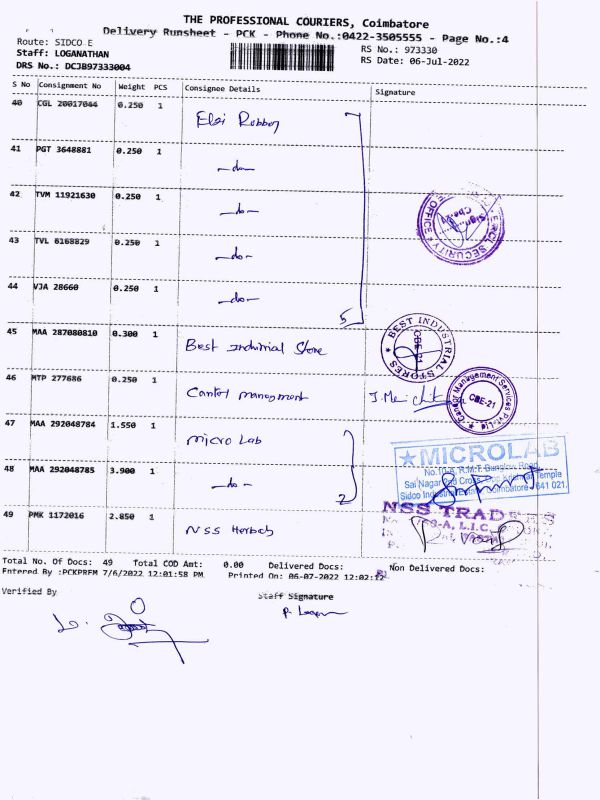 THE PROFESSIONAL COURIERS, Coimbatore
Delivery Runsheet - PCK - Phone No.:0422-3505555 - Page No.:4
Route: SIDCO E
Staff: LOGANATHAN
DRS No.: DCJ897333004
RS No.: 973330
RS Date: 06-Jul-2022
S No Consignment No Weight PCS Consignee Details Signature
40 CGL 20017044 0.250 1
41 PGT 3648881 0.250 1 -do-
42 TVM 11921630 0.250 1 -do-
43 TVL 6168829 0.250 1 -do-
44 VJA 28660 0.250 1 -do-
5
OFFICE SECURITY
45 MAA 287080810 0.300 1 Best Industrial Store
BEST INDUSTRIAL STORES CBE-21
46 MTP 277686 0.250 1
Management Services Pvt. Ltd CBE-21
47 MAA 292048784 1.550 1 Micro Lab
48 MAA 292048785 3.900 1 -do-
2
MICROLAB
Sai Nagar 2nd Cross, Temple
Sidco Coimbatore 641 021.
49 PMK 1172016 2.850 1 NSS
NSS TRADERS
L.I.C.
Total No. Of Docs: 49 Total COD Amt: 0.00 Delivered Docs: Non Delivered Docs:
Entered By :PCKPREM 7/6/2022 12:01:58 PM Printed On: 06-07-2022 12:02:12
Verified By
Staff Signature